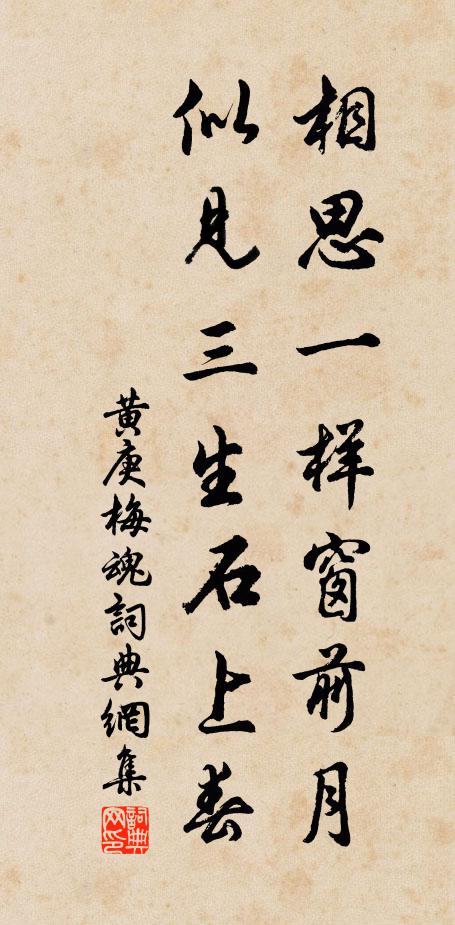 相思一样窗前月
似见三生石上春
黄庚梅魂詞典網集
詞典网印